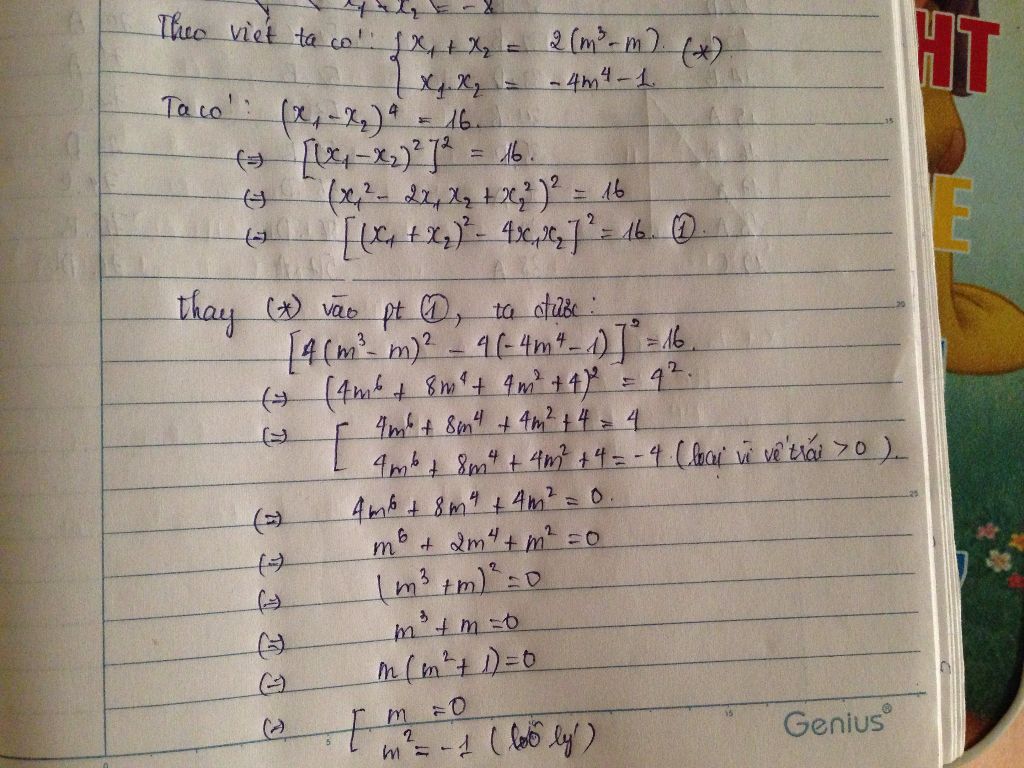 x₁ + x₂ = -8
Theo viét ta có: { x₁ + x₂ = 2(m³ - m). (*)
x₁.x₂ = -4m⁴ - 1.
Ta có: (x₁ - x₂)⁴ = 16.
(=) [(x₁ - x₂)²]² = 16.
(=) (x₁² - 2x₁x₂ + x₂²)² = 16
(=) [(x₁ + x₂)² - 4x₁x₂]² = 16. ①.
Thay (*) vào pt ①, ta được:
[4(m³ - m)² - 4(-4m⁴ - 1)]² = 16.
(=) (4m⁶ + 8m⁴ + 4m² + 4)² = 4².
(=) [ 4m⁶ + 8m⁴ + 4m² + 4 = 4
4m⁶ + 8m⁴ + 4m² + 4 = -4 (loại vì vế trái > 0).
(=) 4m⁶ + 8m⁴ + 4m² = 0.
(=) m⁶ + 2m⁴ + m² = 0
(=) (m³ + m)² = 0
(=) m³ + m = 0
(=) m(m² + 1) = 0
(=) [ m = 0
m² = -1 (vô lý)
Genius®
HT
E
15
20
25
5
15